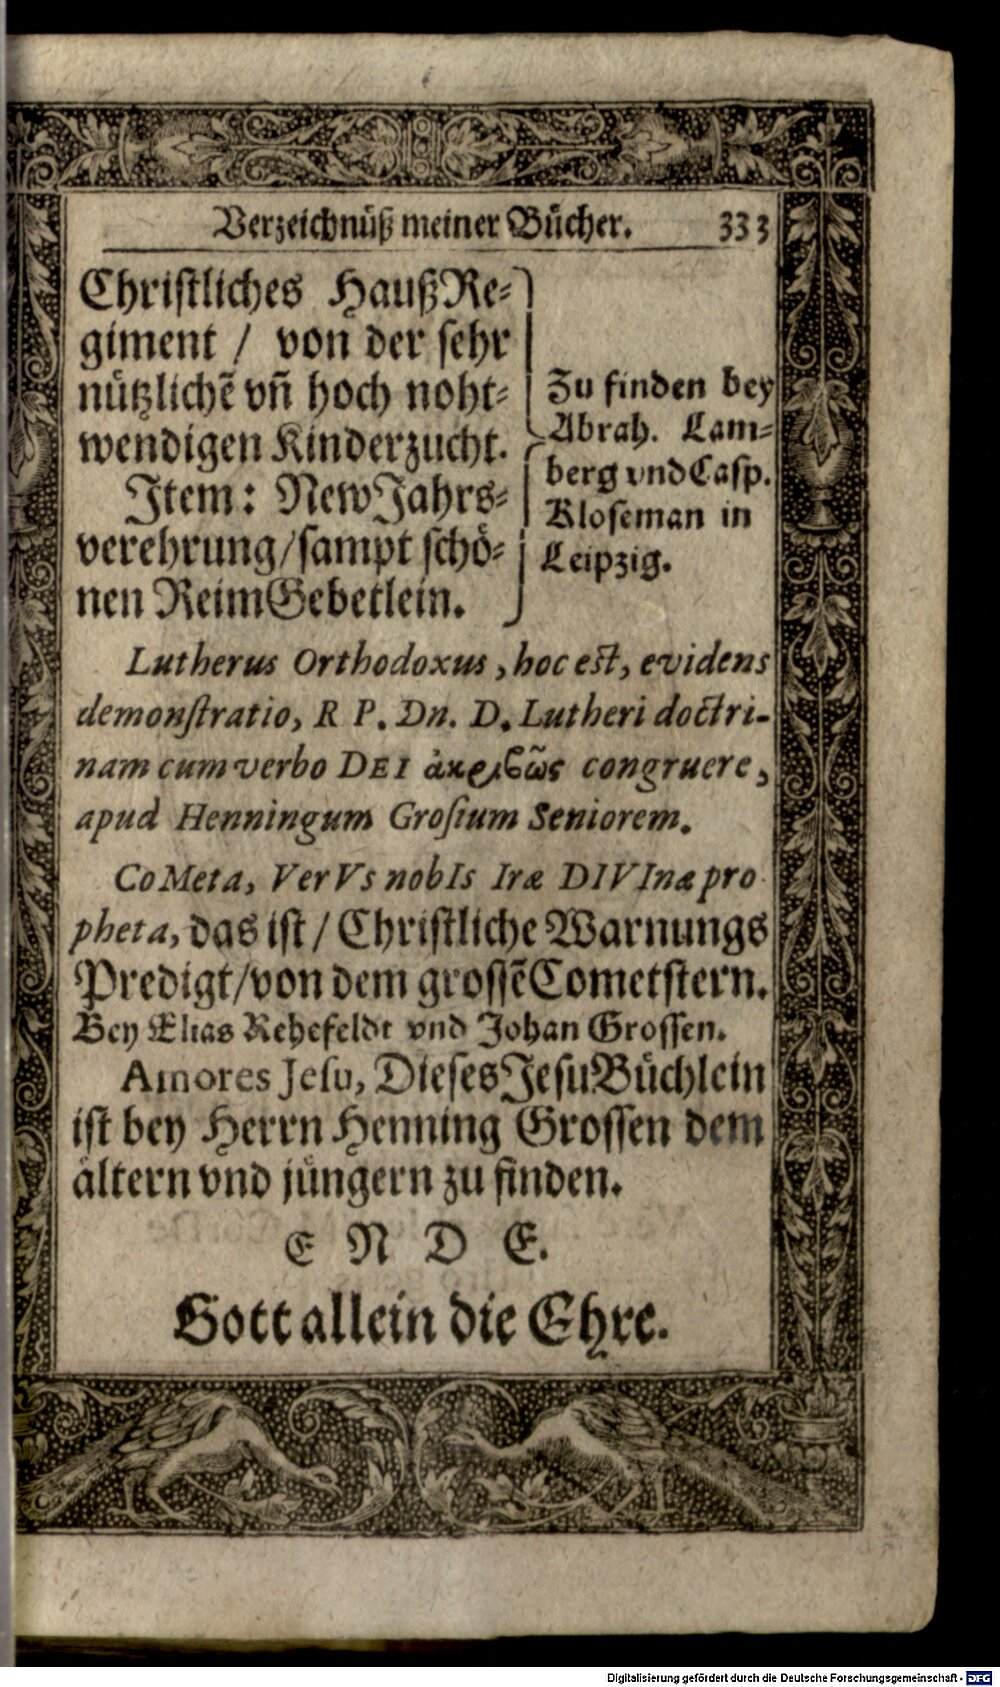 Verzeichnüß meiner Bücher. 333
Christliches HaußRe-
giment / von der sehr
nützlichẽ vñ hoch noht-
wendigen Kinderzucht.
Item: NewJahrs-
verehrung/sampt schö-
nen ReimGebetlein.
Zu finden bey
Abrah. Lam-
berg vnd Casp.
Kloseman in
Leipzig.
Lutherus Orthodoxus, hoc est, evidens
demonstratio, R P. Dn. D. Lutheri doctri-
nam cum verbo DEI ἀκριβῶς congruere,
apud Henningum Grosium Seniorem.
CoMeta, VerVs nobIs Iræ DIVInæ pro
pheta, das ist / Christliche Warnungs
Predigt/von dem grossẽ Cometstern.
Bey Elias Rehefeldt vnd Johan Grossen.
Amores Jesu, Dieses JesuBüchlein
ist bey Herrn Henning Grossen dem
ältern vnd jüngern zu finden.
E N D E.
Gott allein die Ehre.
Digitalisierung gefördert durch die Deutsche Forschungsgemeinschaft - DFG